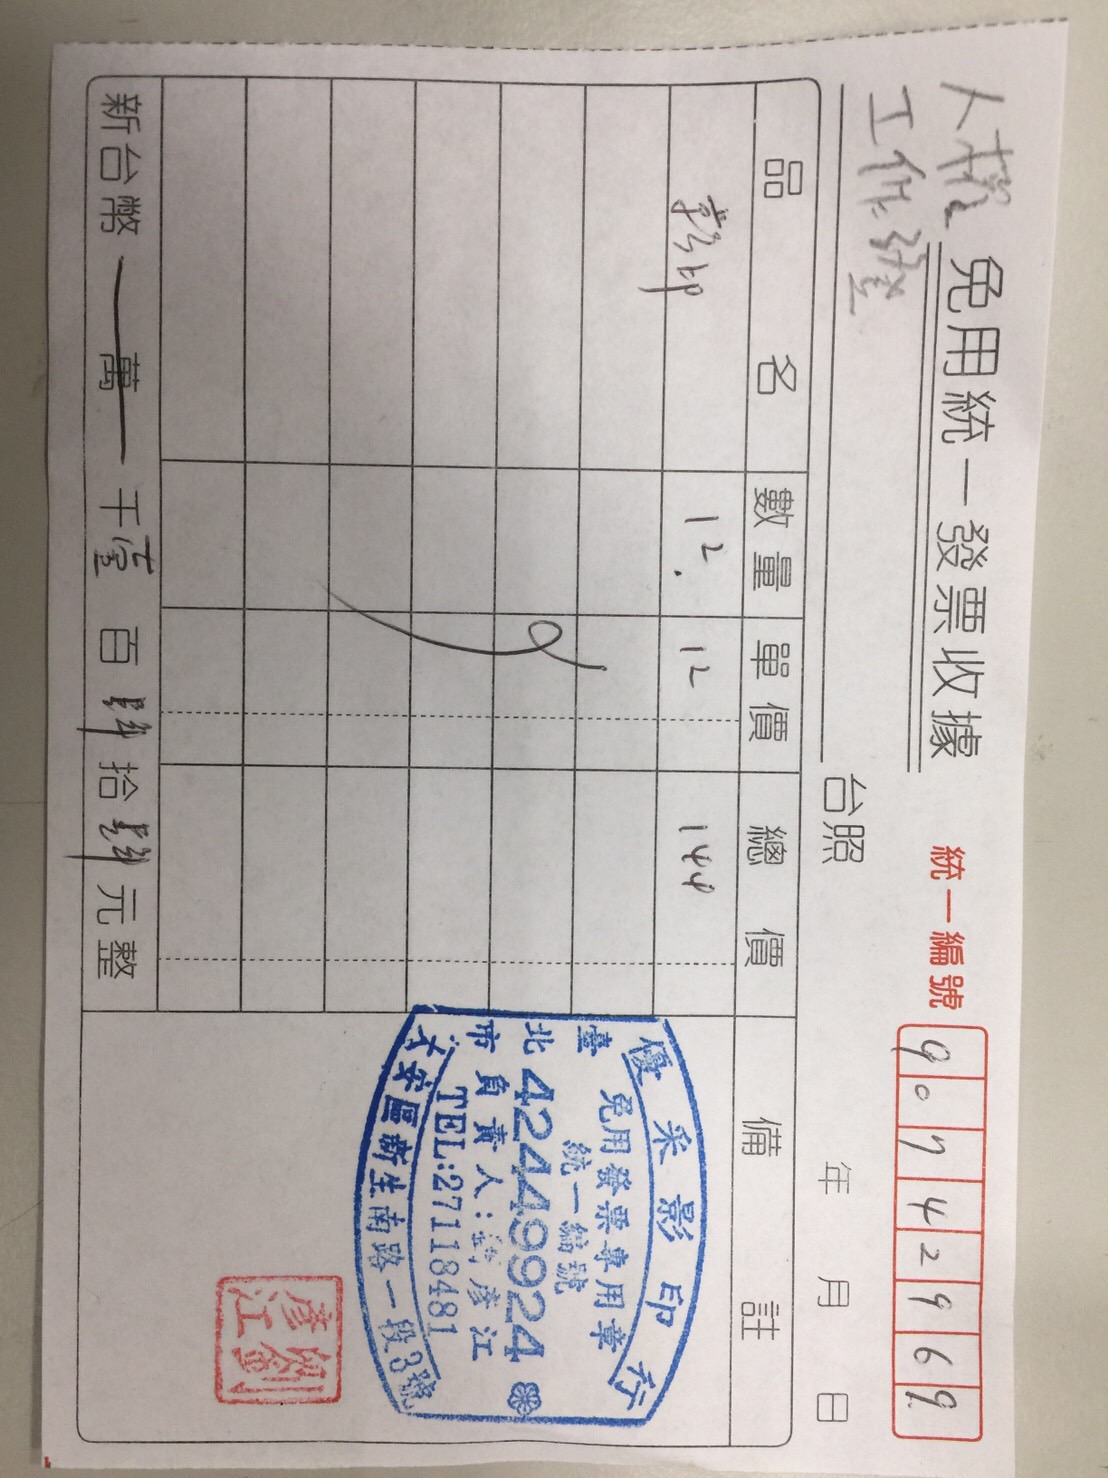 人權
工作證
免用統一發票收據
統一編號 90742969
台照
年 月 日
品名 數量 單價 總價 備註
彩印 12. 12 144
新台幣 萬 千 壹 百 肆 拾 肆 元整
優采影印行
免用發票專用章
統一編號
42449924
負責人:劉彥江
TEL:27118481
臺北市大安區新生南路一段3號
劉彥江